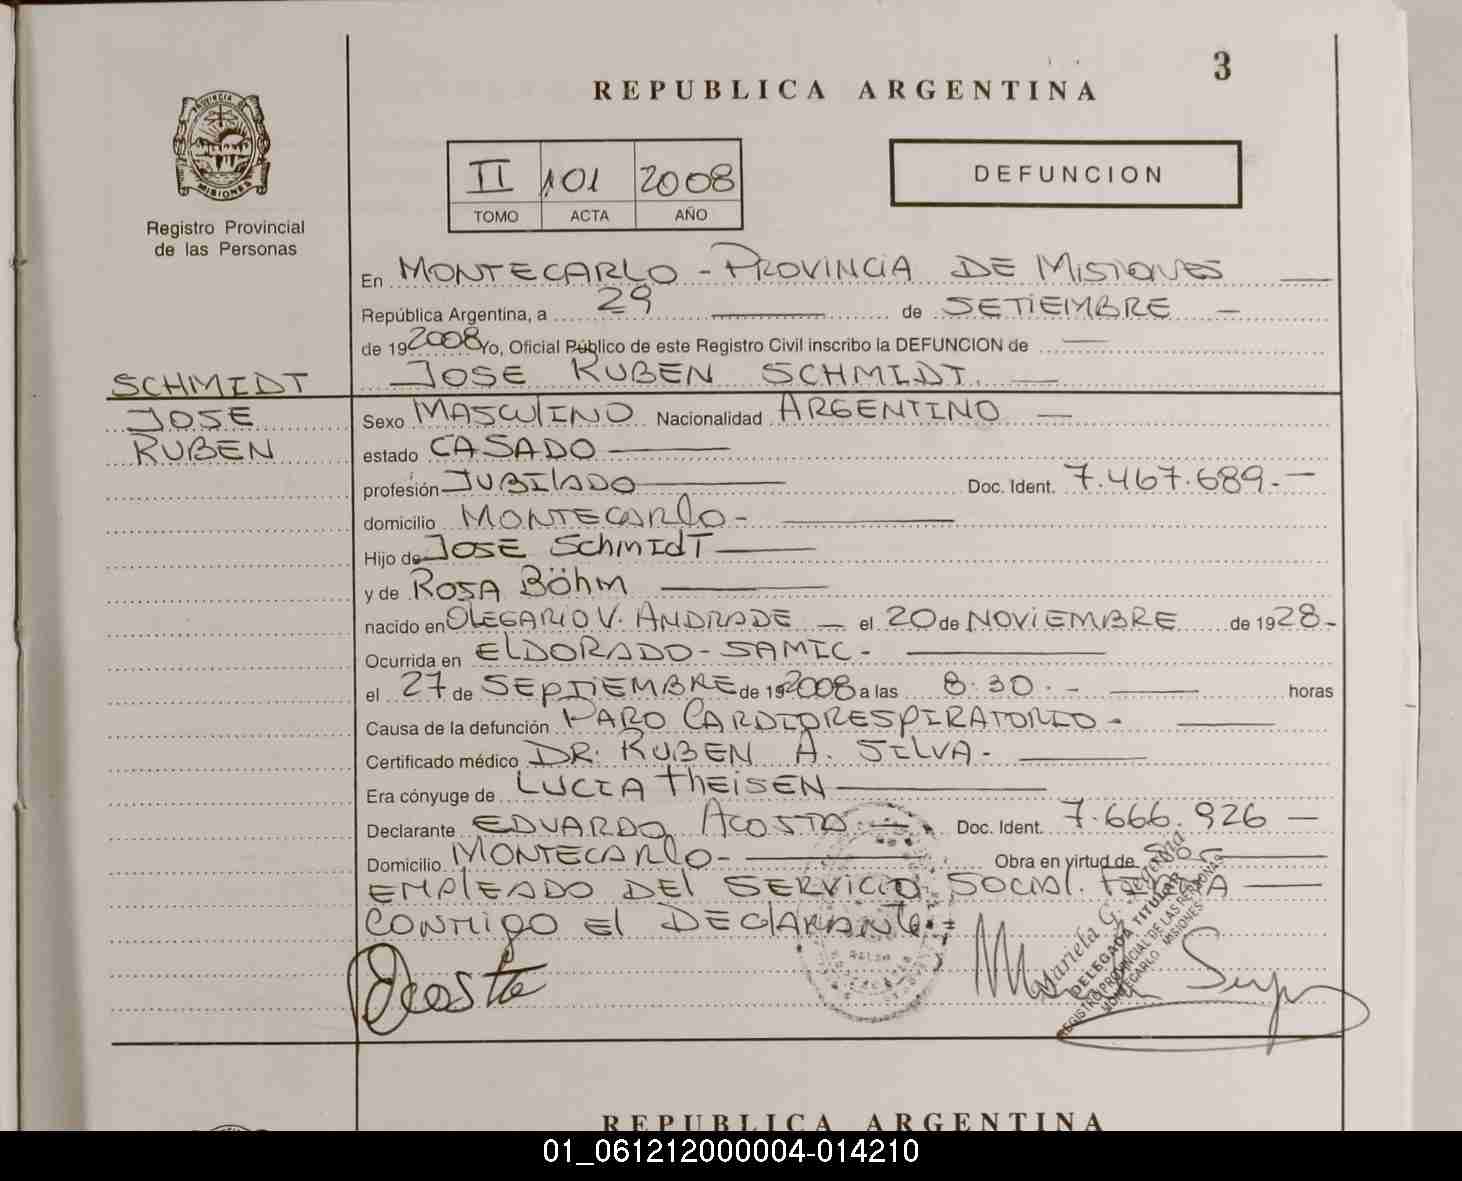 3
REPUBLICA ARGENTINA
PROVINCIA DE
MISIONES
Registro Provincial
de las Personas
II 101 2008
TOMO ACTA AÑO
DEFUNCION
En MONTECARLO - PROVINCIA DE MISIONES
República Argentina, a 29 de SETIEMBRE
de 192008 Yo, Oficial Público de este Registro Civil inscribo la DEFUNCION de
JOSE RUBEN SCHMIDT
SCHMIDT
JOSE
RUBEN
Sexo MASCULINO Nacionalidad ARGENTINO
estado CASADO
profesión JUBILADO Doc. Ident. 7.467.689.-
domicilio MONTECARLO-
Hijo de JOSE SchmIdT
y de ROSA Böhm
nacido en OLEGARIO V. ANDRADE el 20 de NOViEMBRE de 1928-
Ocurrida en ELDORADO-SAMIC-
el 27 de SEPTIEMBRE de 192008 a las 8.30.- horas
Causa de la defunción PARO CARDIORESPIRATORIO-
Certificado médico DR: RUBEN A. SILVA-
Era cónyuge de LUCIA THEISEN
Declarante EDUARDO ACOSTA Doc. Ident. 7.666.926
Domicilio MONTECARLO- Obra en virtud de SER
EMPLEADO DEL SERVICIO SOCIAL. FIRMA
CONMIGO El DECLARANTE.=
Acosta
Mariela G.
DELEGADA TITULAR
REGISTRO PROVINCIAL DE LAS PERSONAS
MONTECARLO MISIONES
REPUBLICA ARGENTINA
01_061212000004-014210